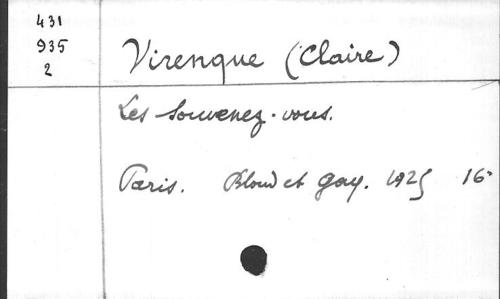 431
935
2
Virenque (Claire)
Les souvenez-vous.
Paris. Bloud et Gay. 1925 16°